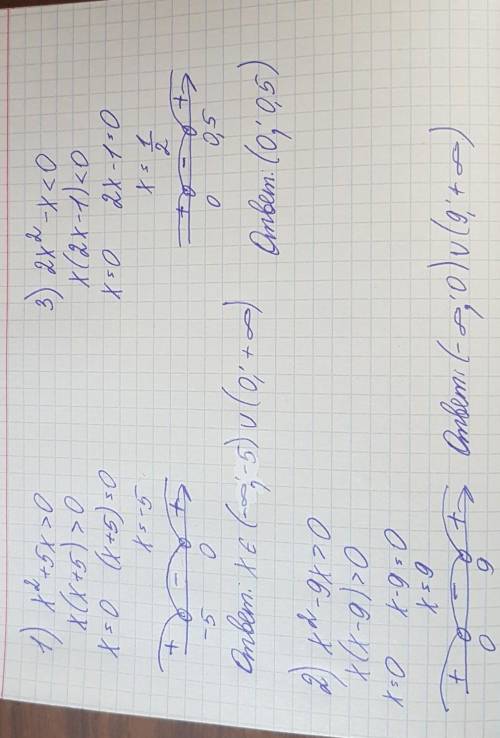 1) x²+5x>0
x(x+5)>0
x=0 (x+5)=0
x=-5
+ - +
-5 0
Ответ: x∈(-∞;-5)∪(0;+∞)
2) x²-9x>0
x(x-9)>0
x=0 x-9=0
x=9
+ - +
0 9
Ответ: (-∞;0)∪(9;+∞)
3) 2x²-x<0
x(2x-1)<0
x=0 2x-1=0
x=1/2
+ - +
0 0,5
Ответ: (0; 0,5)